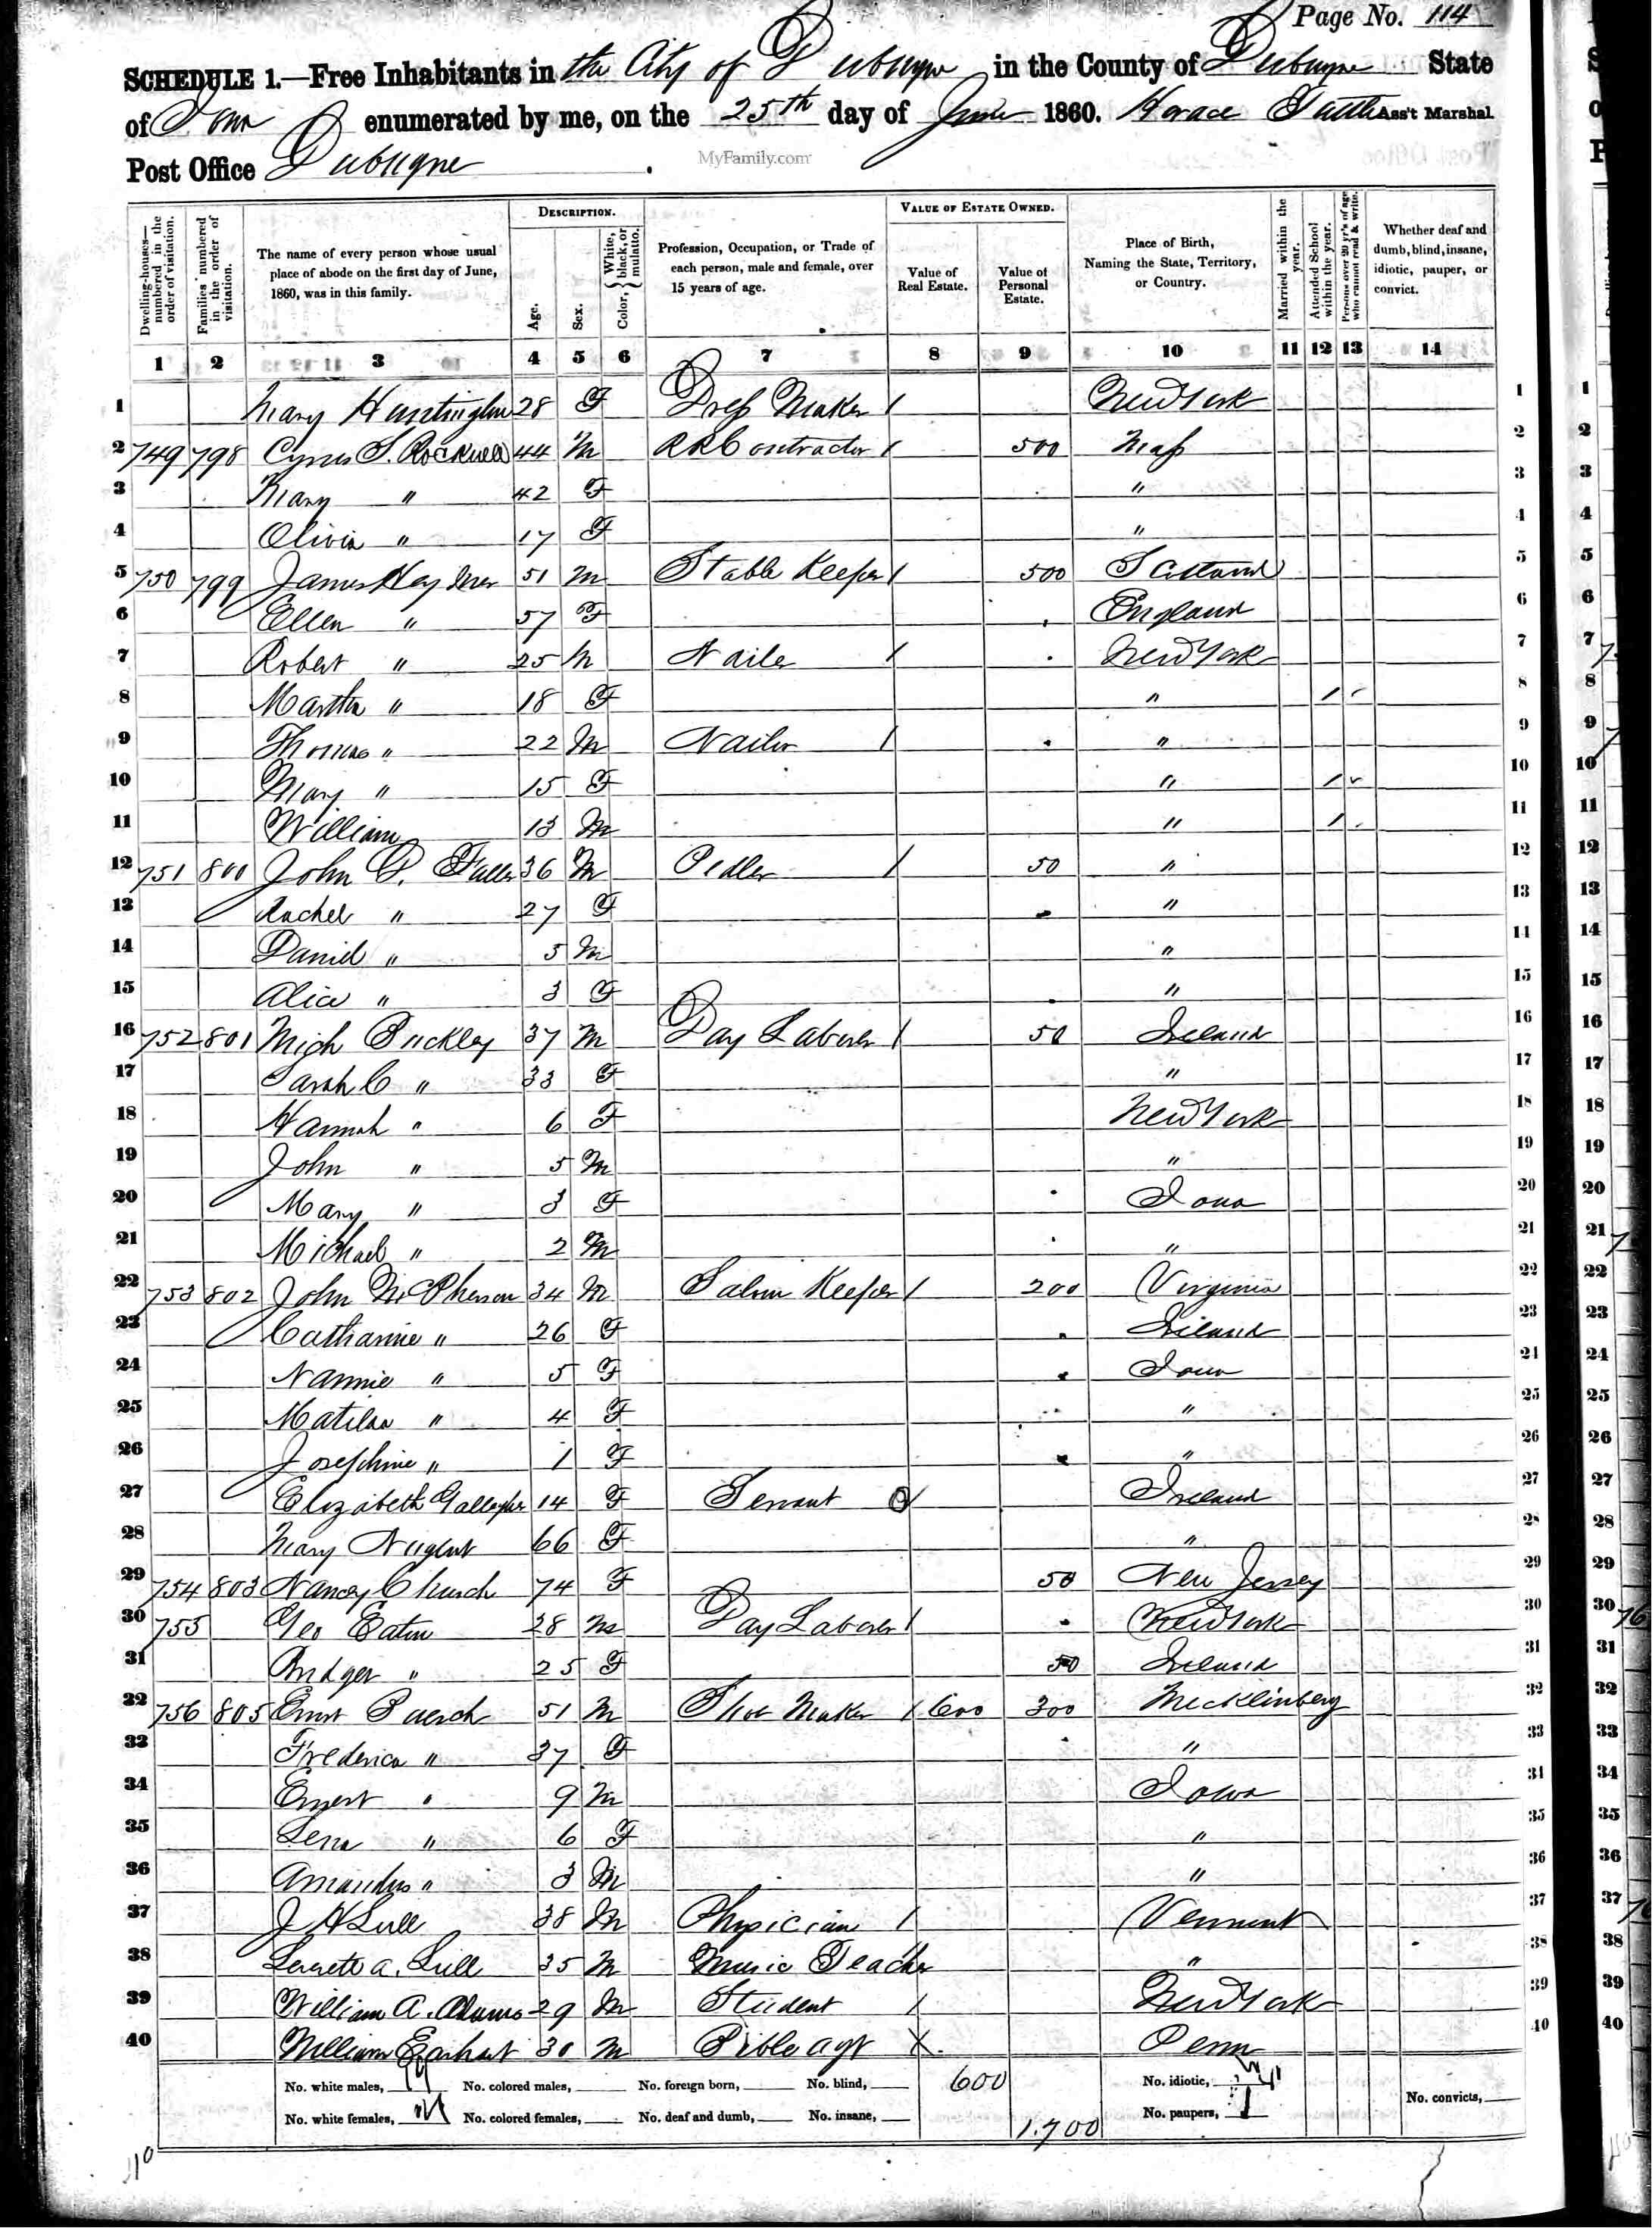 Page No. 114
SCHEDULE 1.—Free Inhabitants in the City of Dubuque in the County of Dubuque State
of Iowa enumerated by me, on the 25th day of June 1860. Horace Ass't Marshal
Post Office Dubuque
MyFamily.com
Dwelling-houses—numbered in the order of visitation.
Families numbered in the order of visitation.
The name of every person whose usual place of abode on the first day of June, 1860, was in this family.
DESCRIPTION.
Age.
Sex.
Color, { White, black, or mulatto.
Profession, Occupation, or Trade of each person, male and female, over 15 years of age.
VALUE OF ESTATE OWNED.
Value of Real Estate.
Value of Personal Estate.
Place of Birth, Naming the State, Territory, or Country.
Married within the year.
Attended School within the year.
Persons over 20 yr's of age who cannot read & write.
Whether deaf and dumb, blind, insane, idiotic, pauper, or convict.
1 2 3 4 5 6 7 8 9 10 11 12 13 14
1 Mary Huntington 28 F Dress Maker / New York 1
2 749 798 Cyrus S. Rockwell 44 M RR Contractor / 500 Mass 2
3 Mary " 42 F " 3
4 Olivia " 17 F " 4
5 750 799 James 51 M Stable Keeper / 500 Scotland 5
6 Ellen " 57 F England 6
7 Robert " 25 M Nailer / New York 7
8 Martha " 18 F " / 8
9 Thomas " 22 M Nailer / " 9
10 Mary " 15 F " / 10
11 William 13 M " / 11
12 751 800 John P. Fuller 36 M Pedler / 50 " 12
13 Rachel " 27 F " 13
14 Daniel " 5 M " 14
15 Alice " 3 F " 15
16 752 801 Mich Buckley 37 M Day Laborer / 50 Ireland 16
17 Sarah C " 33 F " 17
18 Hannah " 6 F New York 18
19 John " 5 M " 19
20 Mary " 3 F Iowa 20
21 Michael " 2 M " 21
22 753 802 John McPherson 34 M Saloon Keeper / 200 Virginia 22
23 Catharine " 26 F Ireland 23
24 Nannie " 5 F Iowa 24
25 Matilda " 4 F " 25
26 Josephine " 1 F " 26
27 Elizabeth Gallagher 14 F Servant Ireland 27
28 Mary Nugent 66 F " 28
29 754 803 Nancy Church 74 F 50 New Jersey 29
30 755 Geo Eaton 28 M Day Laborer / New York 30
31 Bridget " 25 F 50 Ireland 31
32 756 805 Ernst 51 M Shoe Maker / 600 300 Mecklinberg 32
33 Frederica " 37 F " 33
34 Ernest " 9 M Iowa 34
35 Lena " 6 F " 35
36 Amandus " 3 M " 36
37 J H Lull 38 M Physician / Vermont 37
38 A. Lull 35 M Music Teacher " 38
39 William A. Adams 29 M Student / New York 39
40 William Earhart 30 M Bible Agt X Penn 40
No. white males, No. colored males, No. foreign born, No. blind, 600 No. idiotic,
No. white females, No. colored females, No. deaf and dumb, No. insane, 1.700 No. paupers, No. convicts,
110